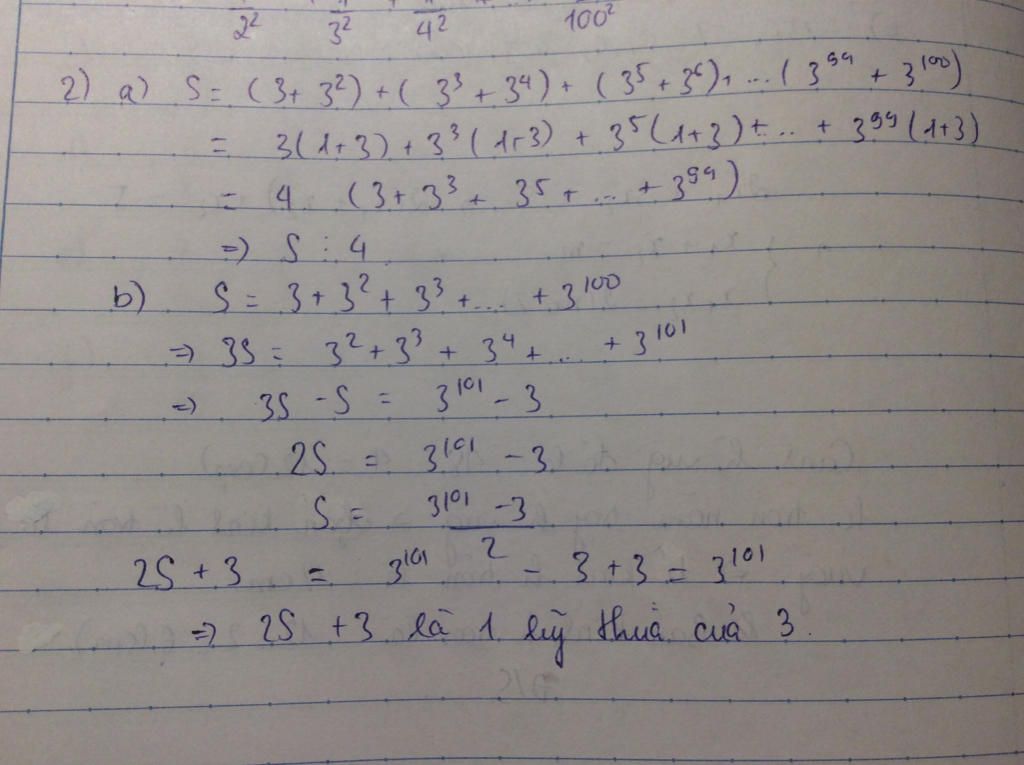 1/2² + 1/3² + 1/4² + ... 1/100²
2) a) S = (3 + 3²) + (3³ + 3⁴) + (3⁵ + 3⁶) + ... (3⁹⁹ + 3¹⁰⁰)
= 3(1+3) + 3³(1+3) + 3⁵(1+3) + ... + 3⁹⁹(1+3)
= 4 (3 + 3³ + 3⁵ + ... + 3⁹⁹)
=> S ⋮ 4
b) S = 3 + 3² + 3³ + ... + 3¹⁰⁰
=> 3S = 3² + 3³ + 3⁴ + ... + 3¹⁰¹
=> 3S - S = 3¹⁰¹ - 3
2S = 3¹⁰¹ - 3
S = (3¹⁰¹ - 3)/2
2S + 3 = 3¹⁰¹ - 3 + 3 = 3¹⁰¹
=> 2S + 3 là 1 lũy thừa của 3.